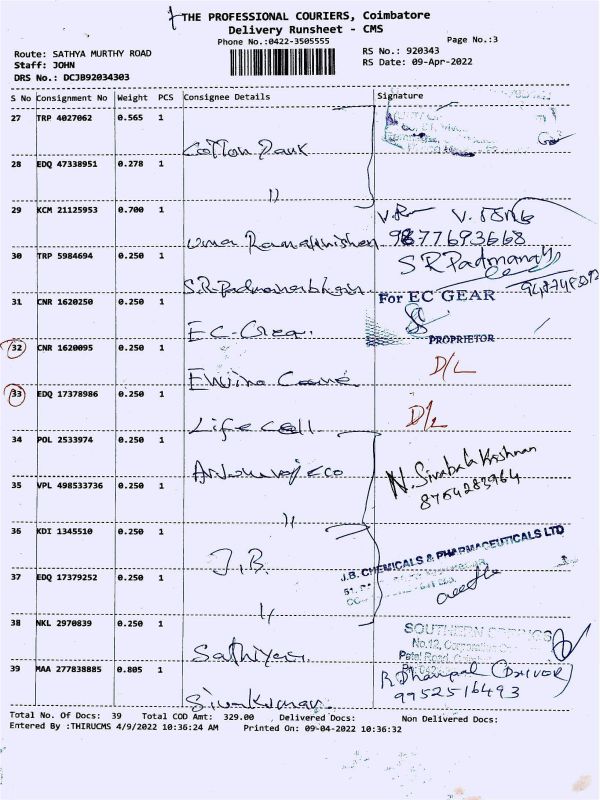 THE PROFESSIONAL COURIERS, Coimbatore
Delivery Runsheet - CMS
Phone No.:0422-3505555
Page No.:3
Route: SATHYA MURTHY ROAD
RS No.: 920343
Staff: JOHN
RS Date: 09-Apr-2022
DRS No.: DCJB92034303
S No Consignment No Weight PCS Consignee Details Signature
27 TRP 4027062 0.565 1
Cotton
28 EDQ 47338951 0.278 1
"
29 KCM 21125953 0.700 1
Uma Ramakrishnan
V. 
9877693668
30 TRP 5984694 0.250 1
S.R. Padmanabhan
S R Padmanab
31 CNR 1620250 0.250 1
EC-Gear.
For EC GEAR
PROPRIETOR
32 CNR 1620095 0.250 1
D/L
33 EDQ 17378986 0.250 1
Life cell
D/L
34 POL 2533974 0.250 1
N. Sivabala Krishnan
8754283964
35 VPL 498533736 0.250 1
"
36 KDI 1345510 0.250 1
J.B.
J.B. CHEMICALS & PHARMACEUTICALS LTD
37 EDQ 17379252 0.250 1
"
38 NKL 2970839 0.250 1
SOUTHERN SPRINGS
No.12, Corporation
Patel Road,
39 MAA 277838885 0.805 1
Sivakumar
R. Dhanapal (DRIVOR)
9952516493
Total No. Of Docs: 39 Total COD Amt: 329.00 Delivered Docs: Non Delivered Docs:
Entered By :THIRUCMS 4/9/2022 10:36:24 AM Printed On: 09-04-2022 10:36:32